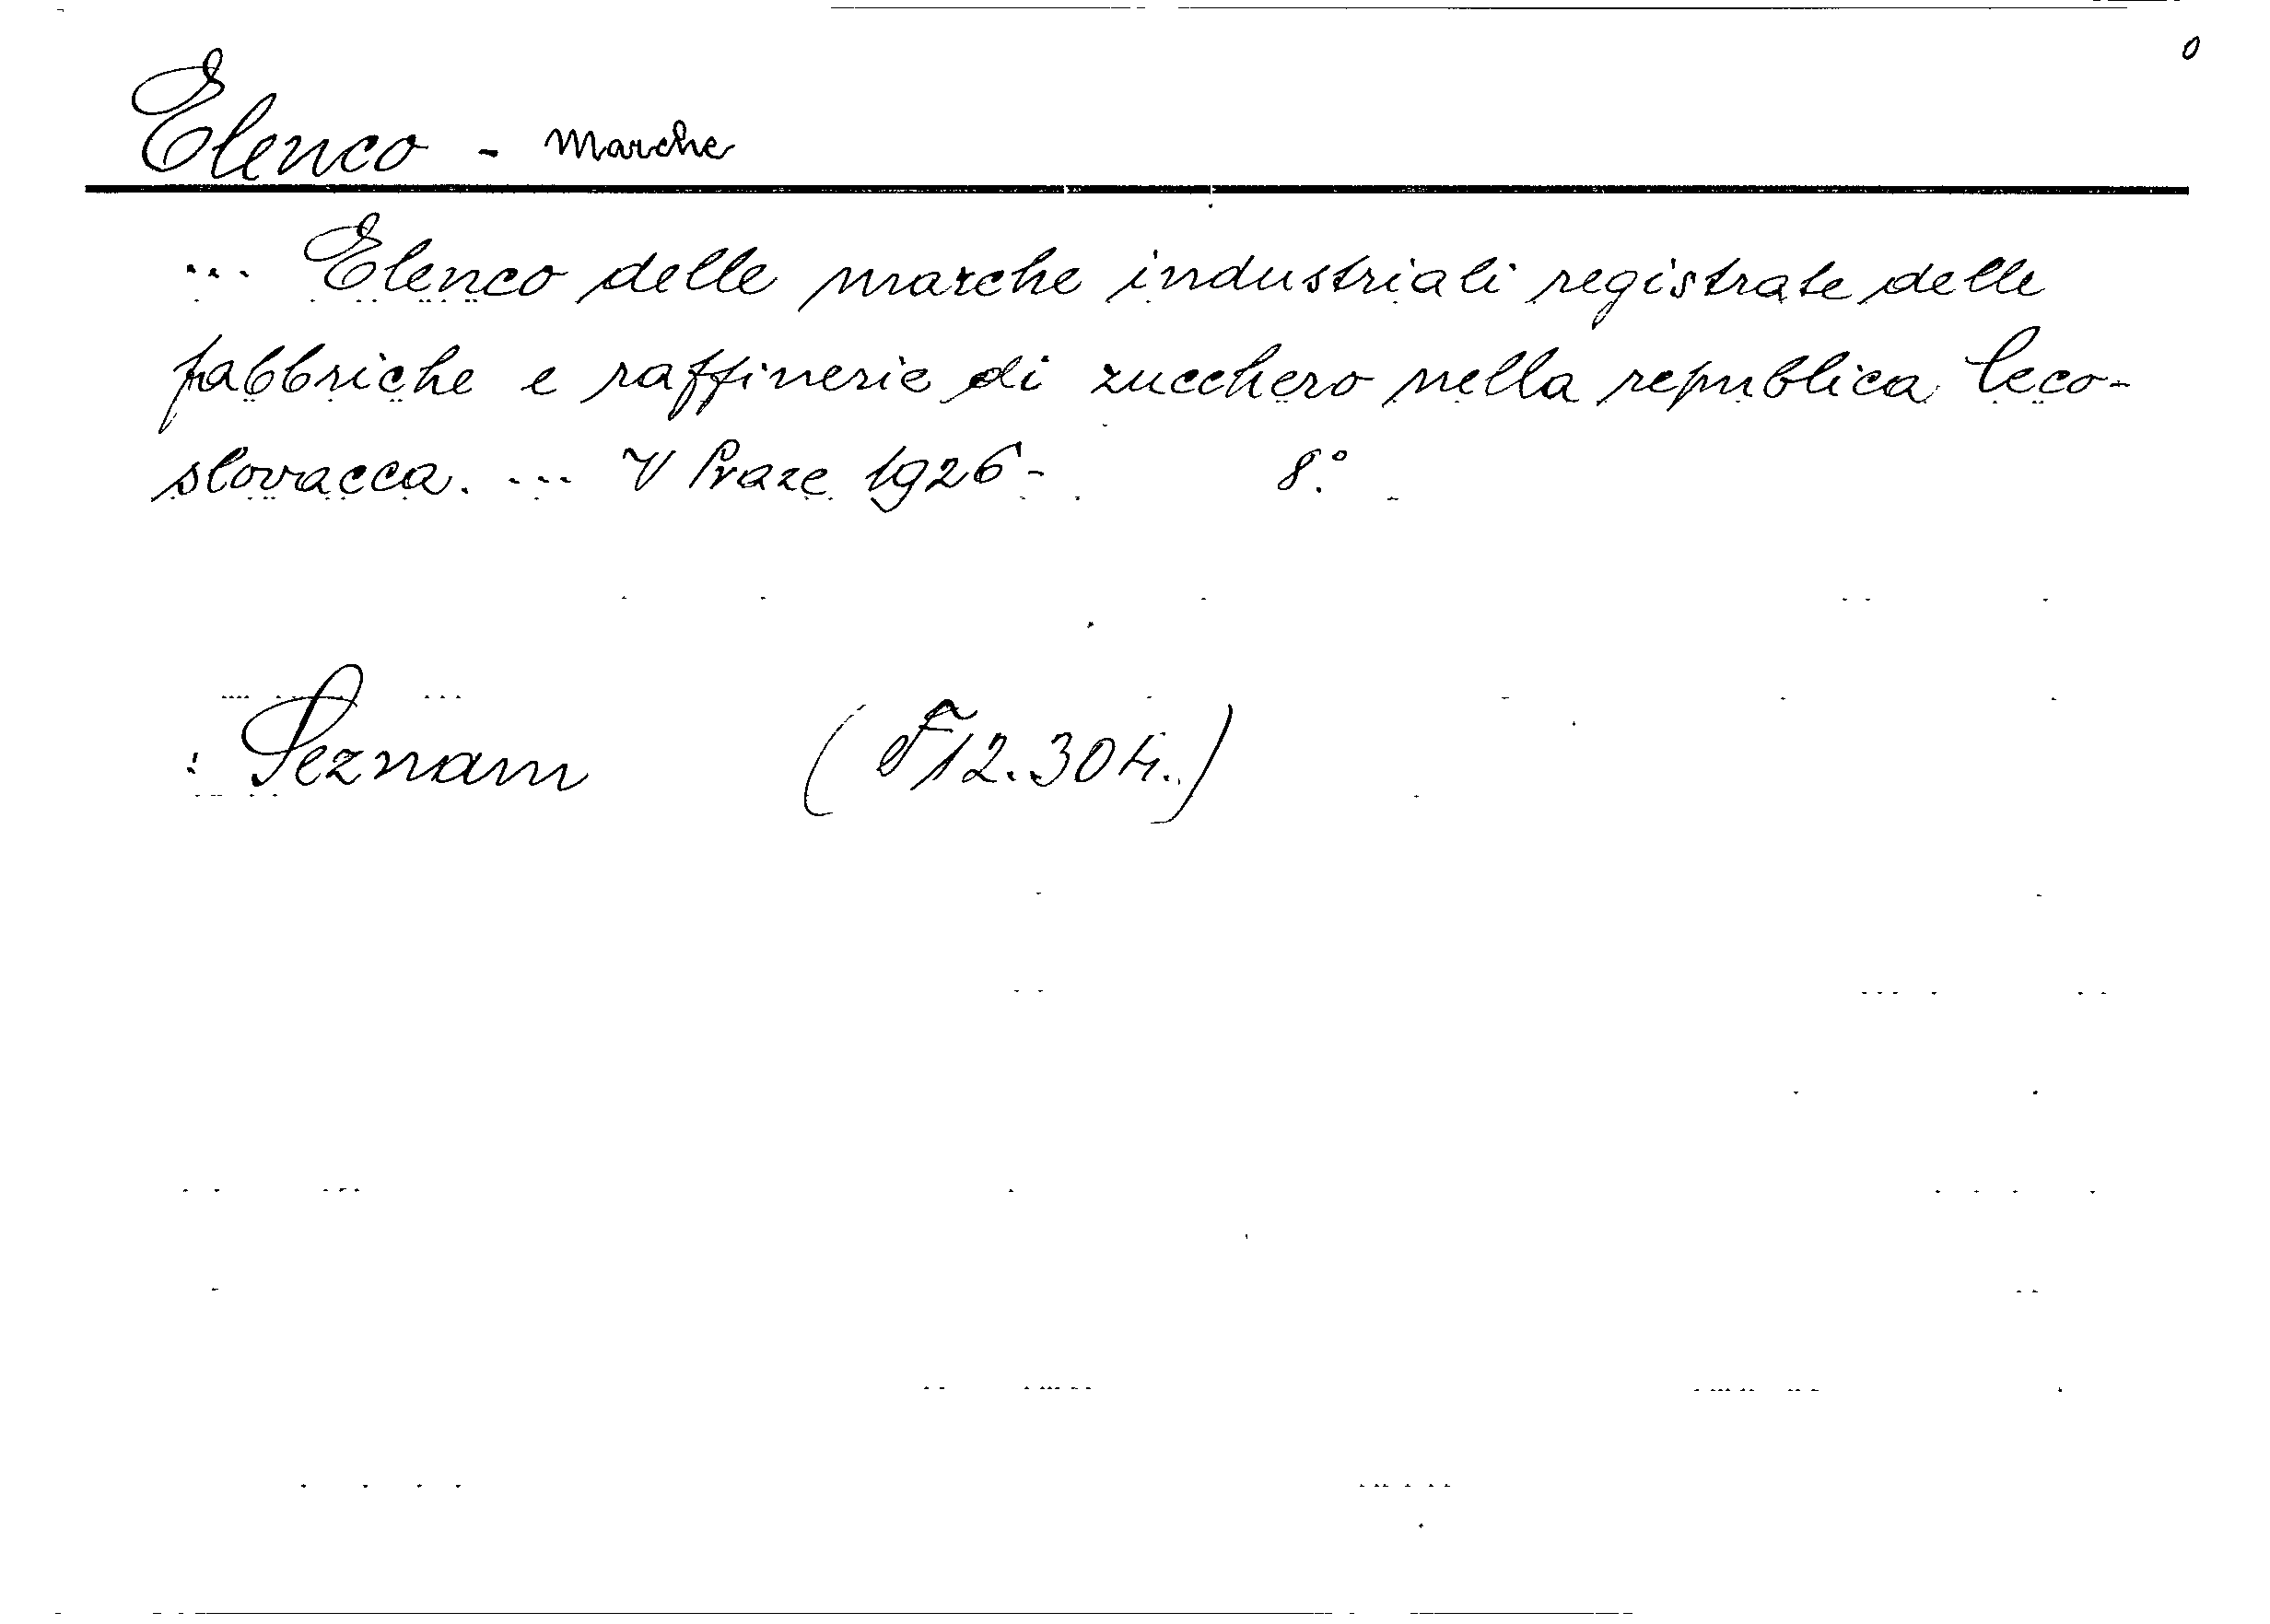 0
Elenco - Marche
... Elenco delle marche industriali registrate delle
fabbriche e raffinerie di zucchero nella republica Ceco-
slovacca. ... V Praze 1926- 8°.
: Seznam (F12.304.)